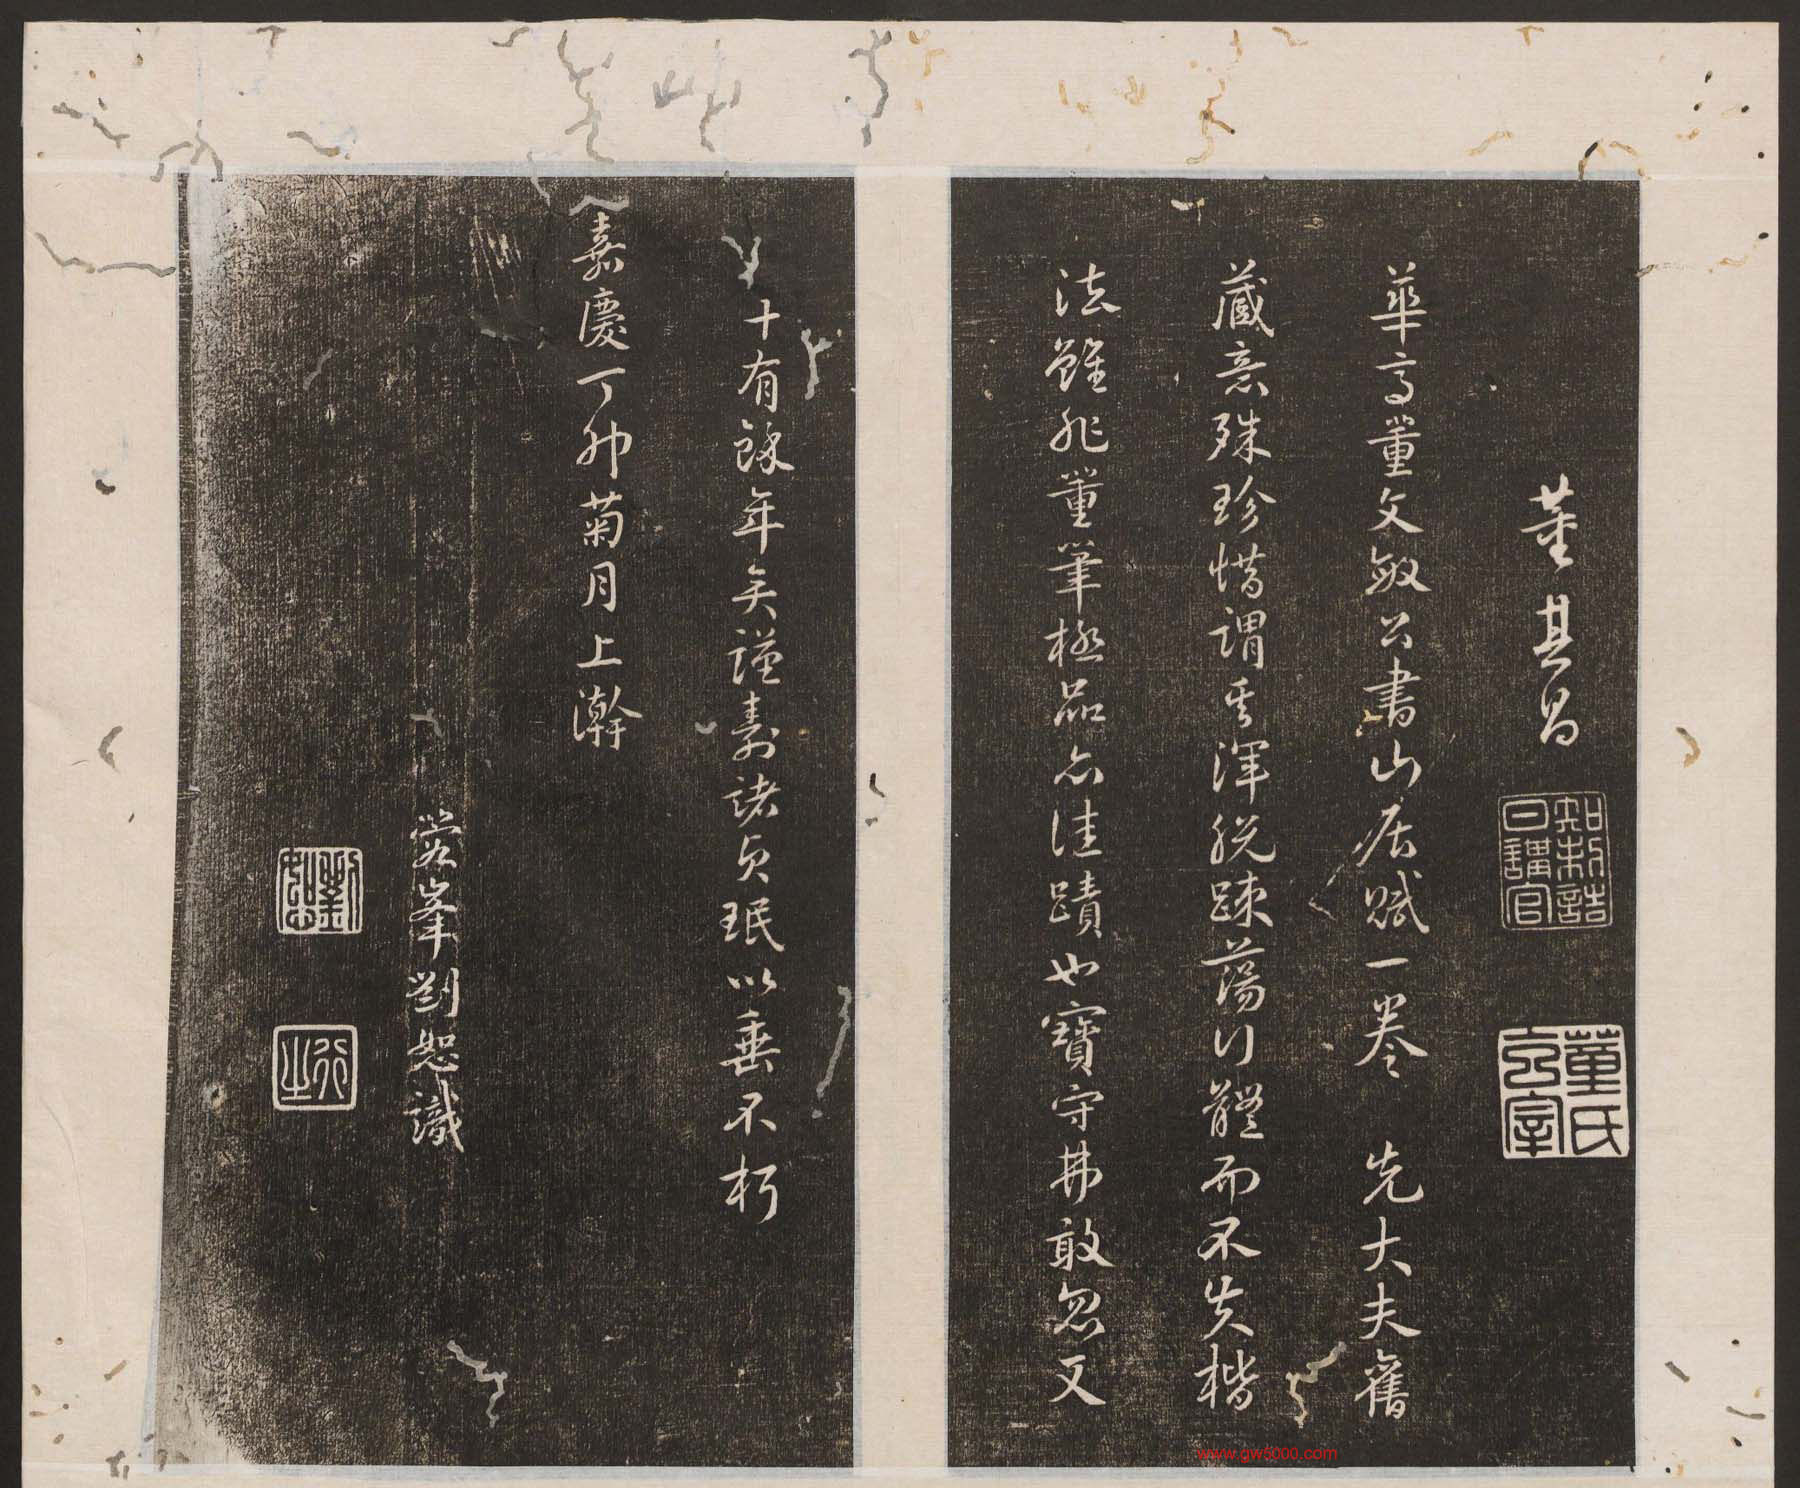 董其昌
知制誥日講官
董氏玄宰
華亭董文敏公書山居賦一卷 先大夫舊
藏意殊珍惜謂其渾脫踈蕩行體而不失楷
法雖非董筆極品亦佳蹟也寶守弗敢忽又
十有餘年矣謹壽諸貞珉以垂不朽
嘉慶丁卯菊月上澣
蓉峯劉恕識
劉恕
行之
www.gw5000.com